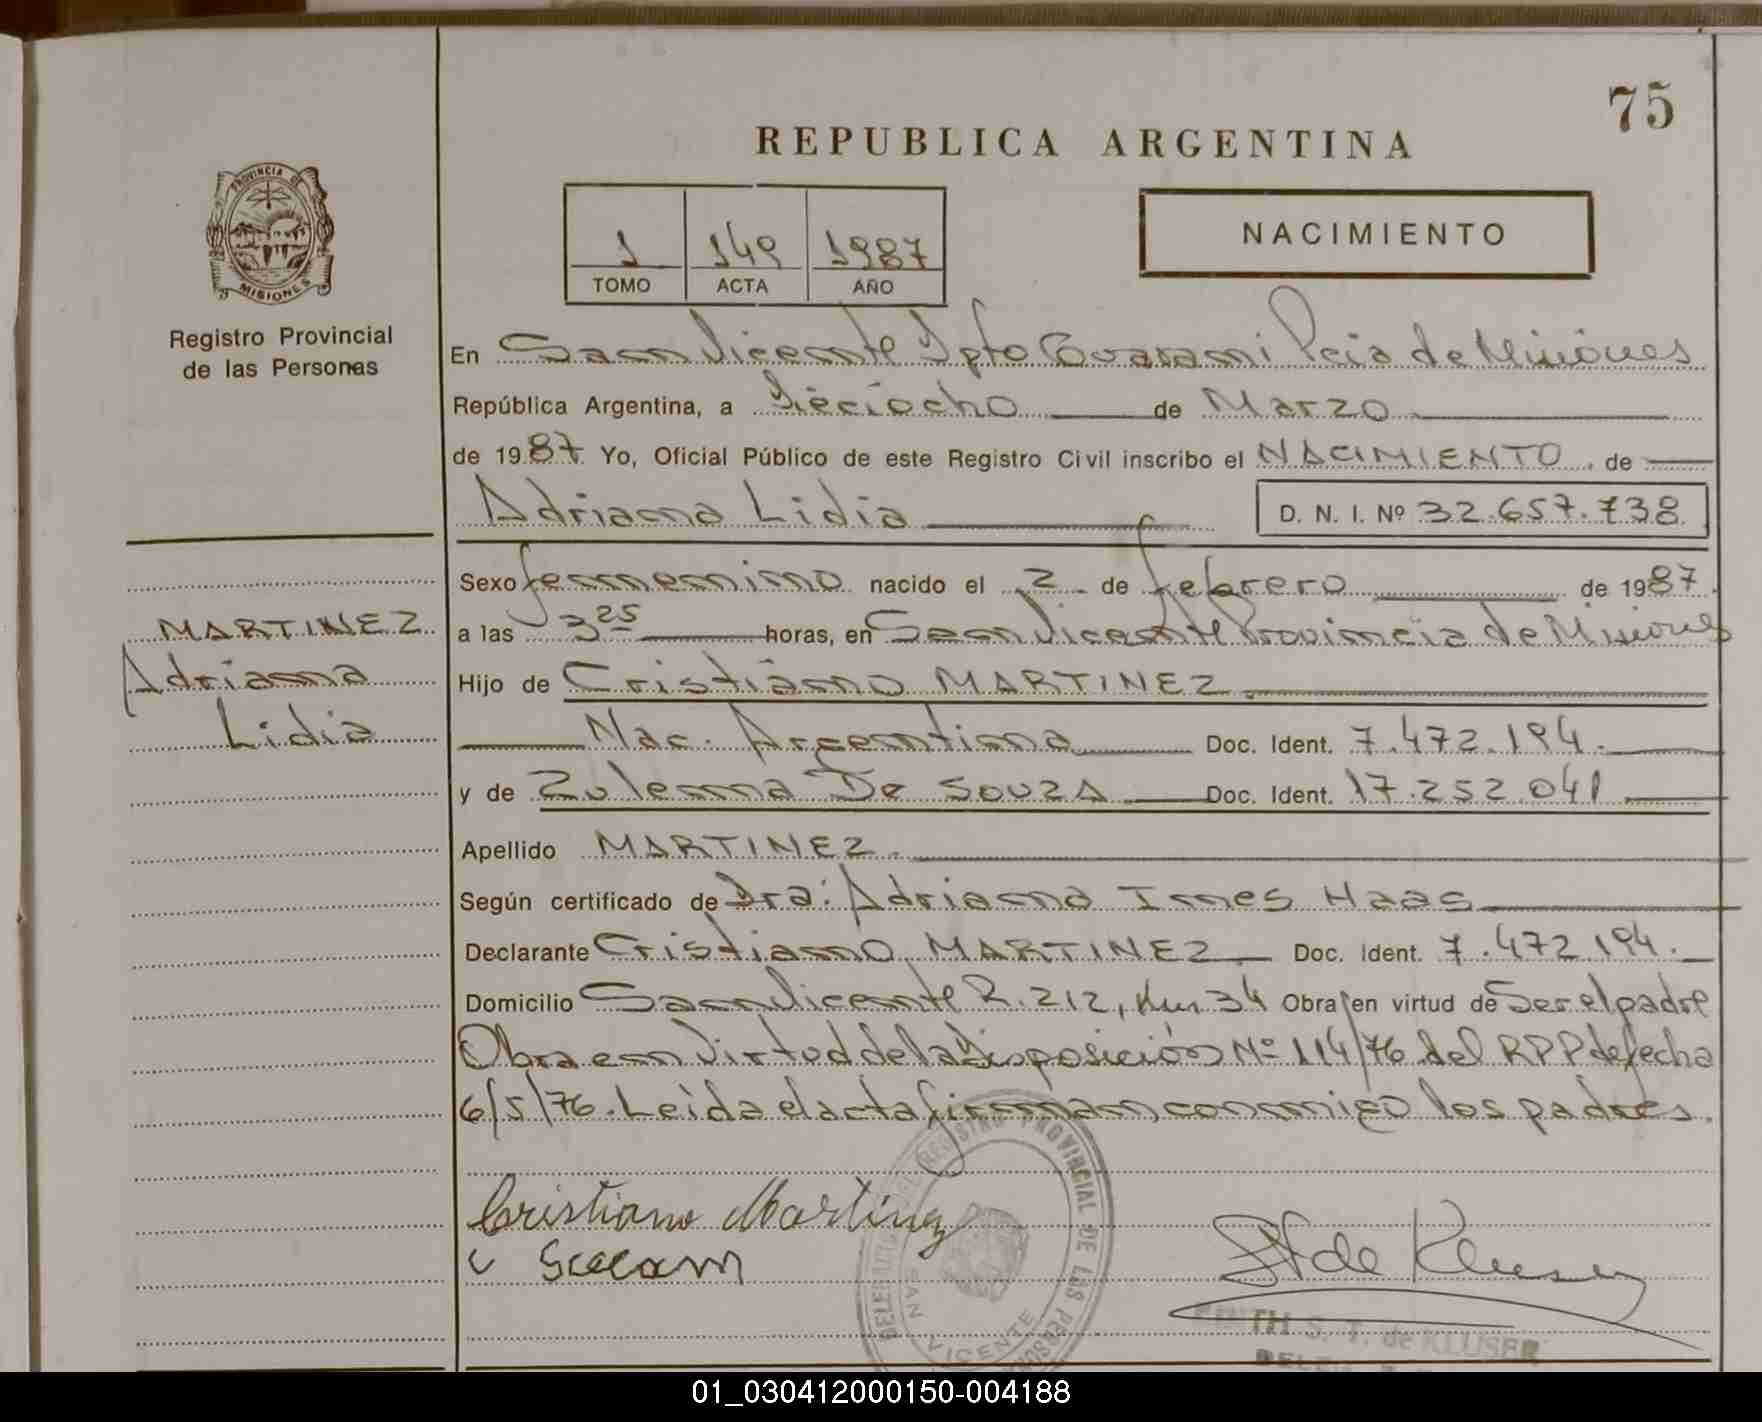 75
REPUBLICA ARGENTINA
PROVINCIA DE
MISIONES
Registro Provincial
de las Personas
1 149 1987
TOMO ACTA AÑO
NACIMIENTO
En San Vicente Dpto Guarani Pcia de Misiones
República Argentina, a Dieciocho de Marzo
de 1987 Yo, Oficial Público de este Registro Civil inscribo el NACIMIENTO de
Adriana Lidia D. N. I. Nº 32.657.738
Sexo femenino nacido el 2 de febrero de 1987
MARTINEZ
Adriana
Lidia
a las 3 25 horas, en San Vicente Provincia de Misiones
Hijo de Cristiano MARTINEZ
Nac. Argentina Doc. Ident. 7.472.194.
y de Zulema De SOUZA Doc. Ident. 17.252.041
Apellido MARTINEZ.
Según certificado de Dra: Adriana Ines Haas
Declarante Cristiano MARTINEZ Doc. Ident. 7.472.194.
Domicilio San Vicente R. 212, Km 34 Obra en virtud de Ser el padre
Obra en virtud de la Disposición Nº 114/76 del RPP de fecha
6/5/76. Leida el acta firman conmigo los padres.
REGISTRO PROVINCIAL DE LAS
SAN VICENTE
Cristiano Martinez
de Kluser
S. T. de KLUSER
01_030412000150-004188